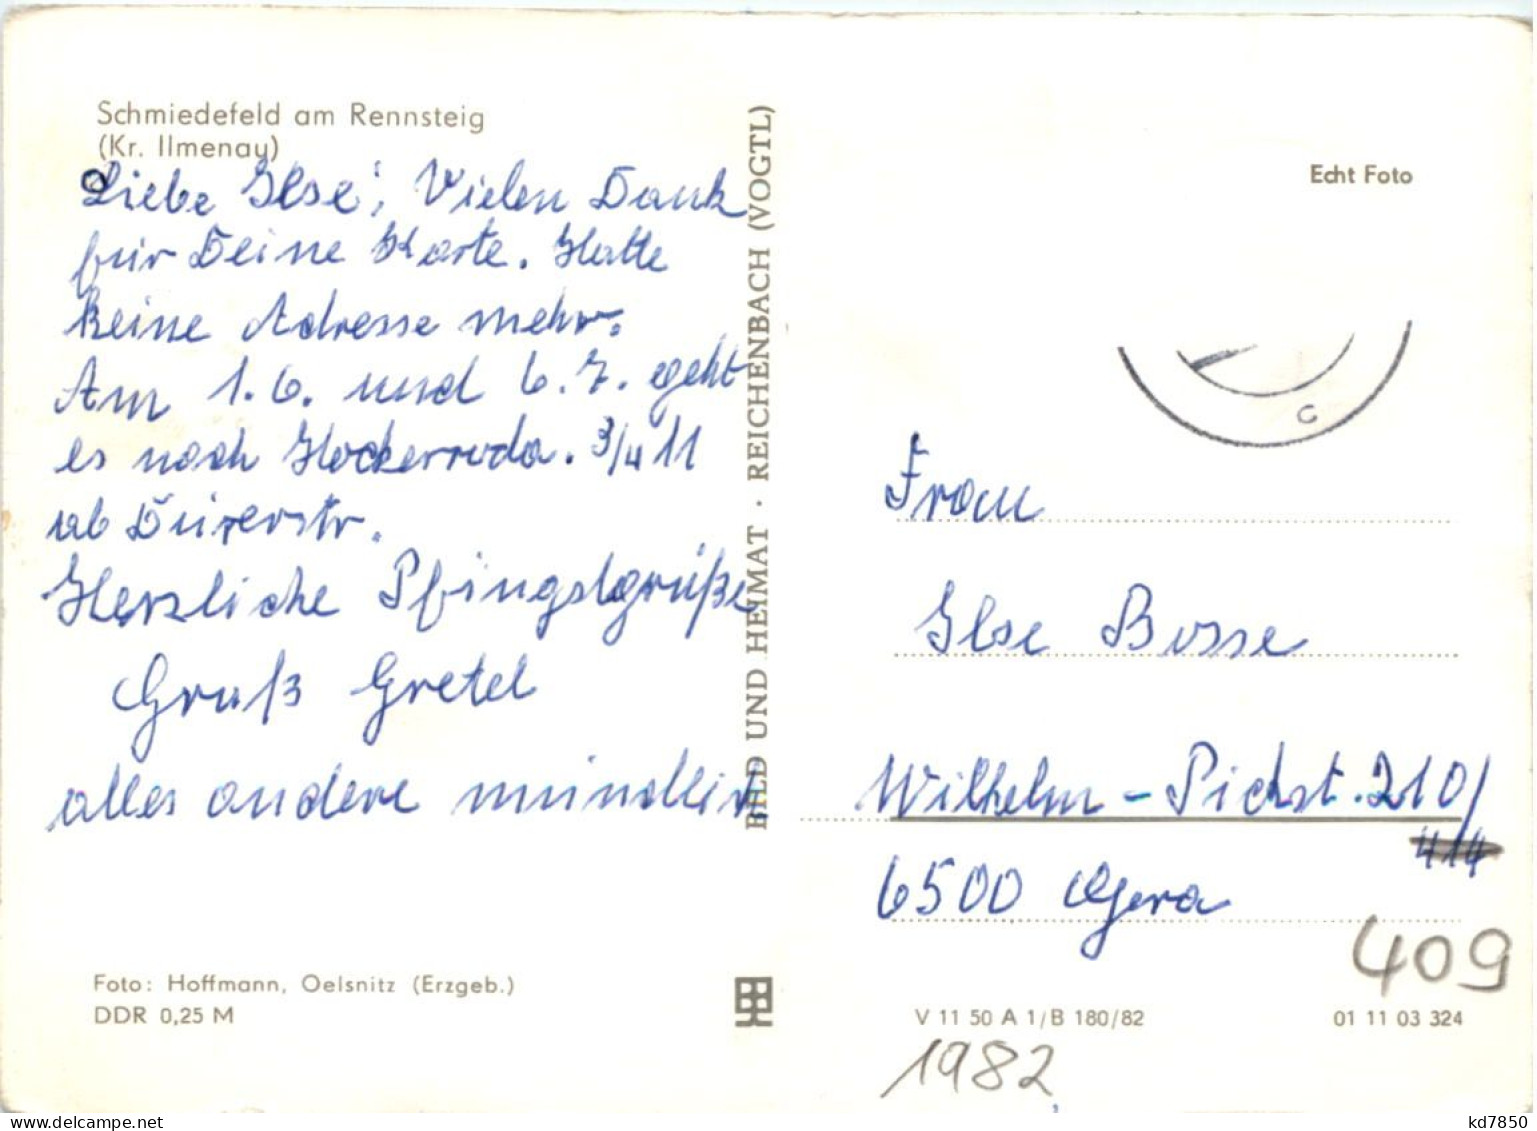 Schmiedefeld am Rennsteig
(Kr. Ilmenau)
Liebe Ilse, Vielen Dank
für Deine Karte. Hatte
keine Adresse mehr.
Am 1.6. und 6.7. geht
es nach Hockerroda. 3/4 11
ab Dürerstr.
Herzliche Pfingstgrüße
Gruß Gretel
alles andere mündlich
BILD UND HEIMAT · REICHENBACH (VOGTL)
Foto: Hoffmann, Oelsnitz (Erzgeb.)
DDR 0,25 M
Echt Foto
C
Frau
Ilse Bosse
Wilhelm-Pickst. 210/
414
6500 Gera
409
V 11 50 A 1/B 180/82
01 11 03 324
1982
delcampe.net
kd7850